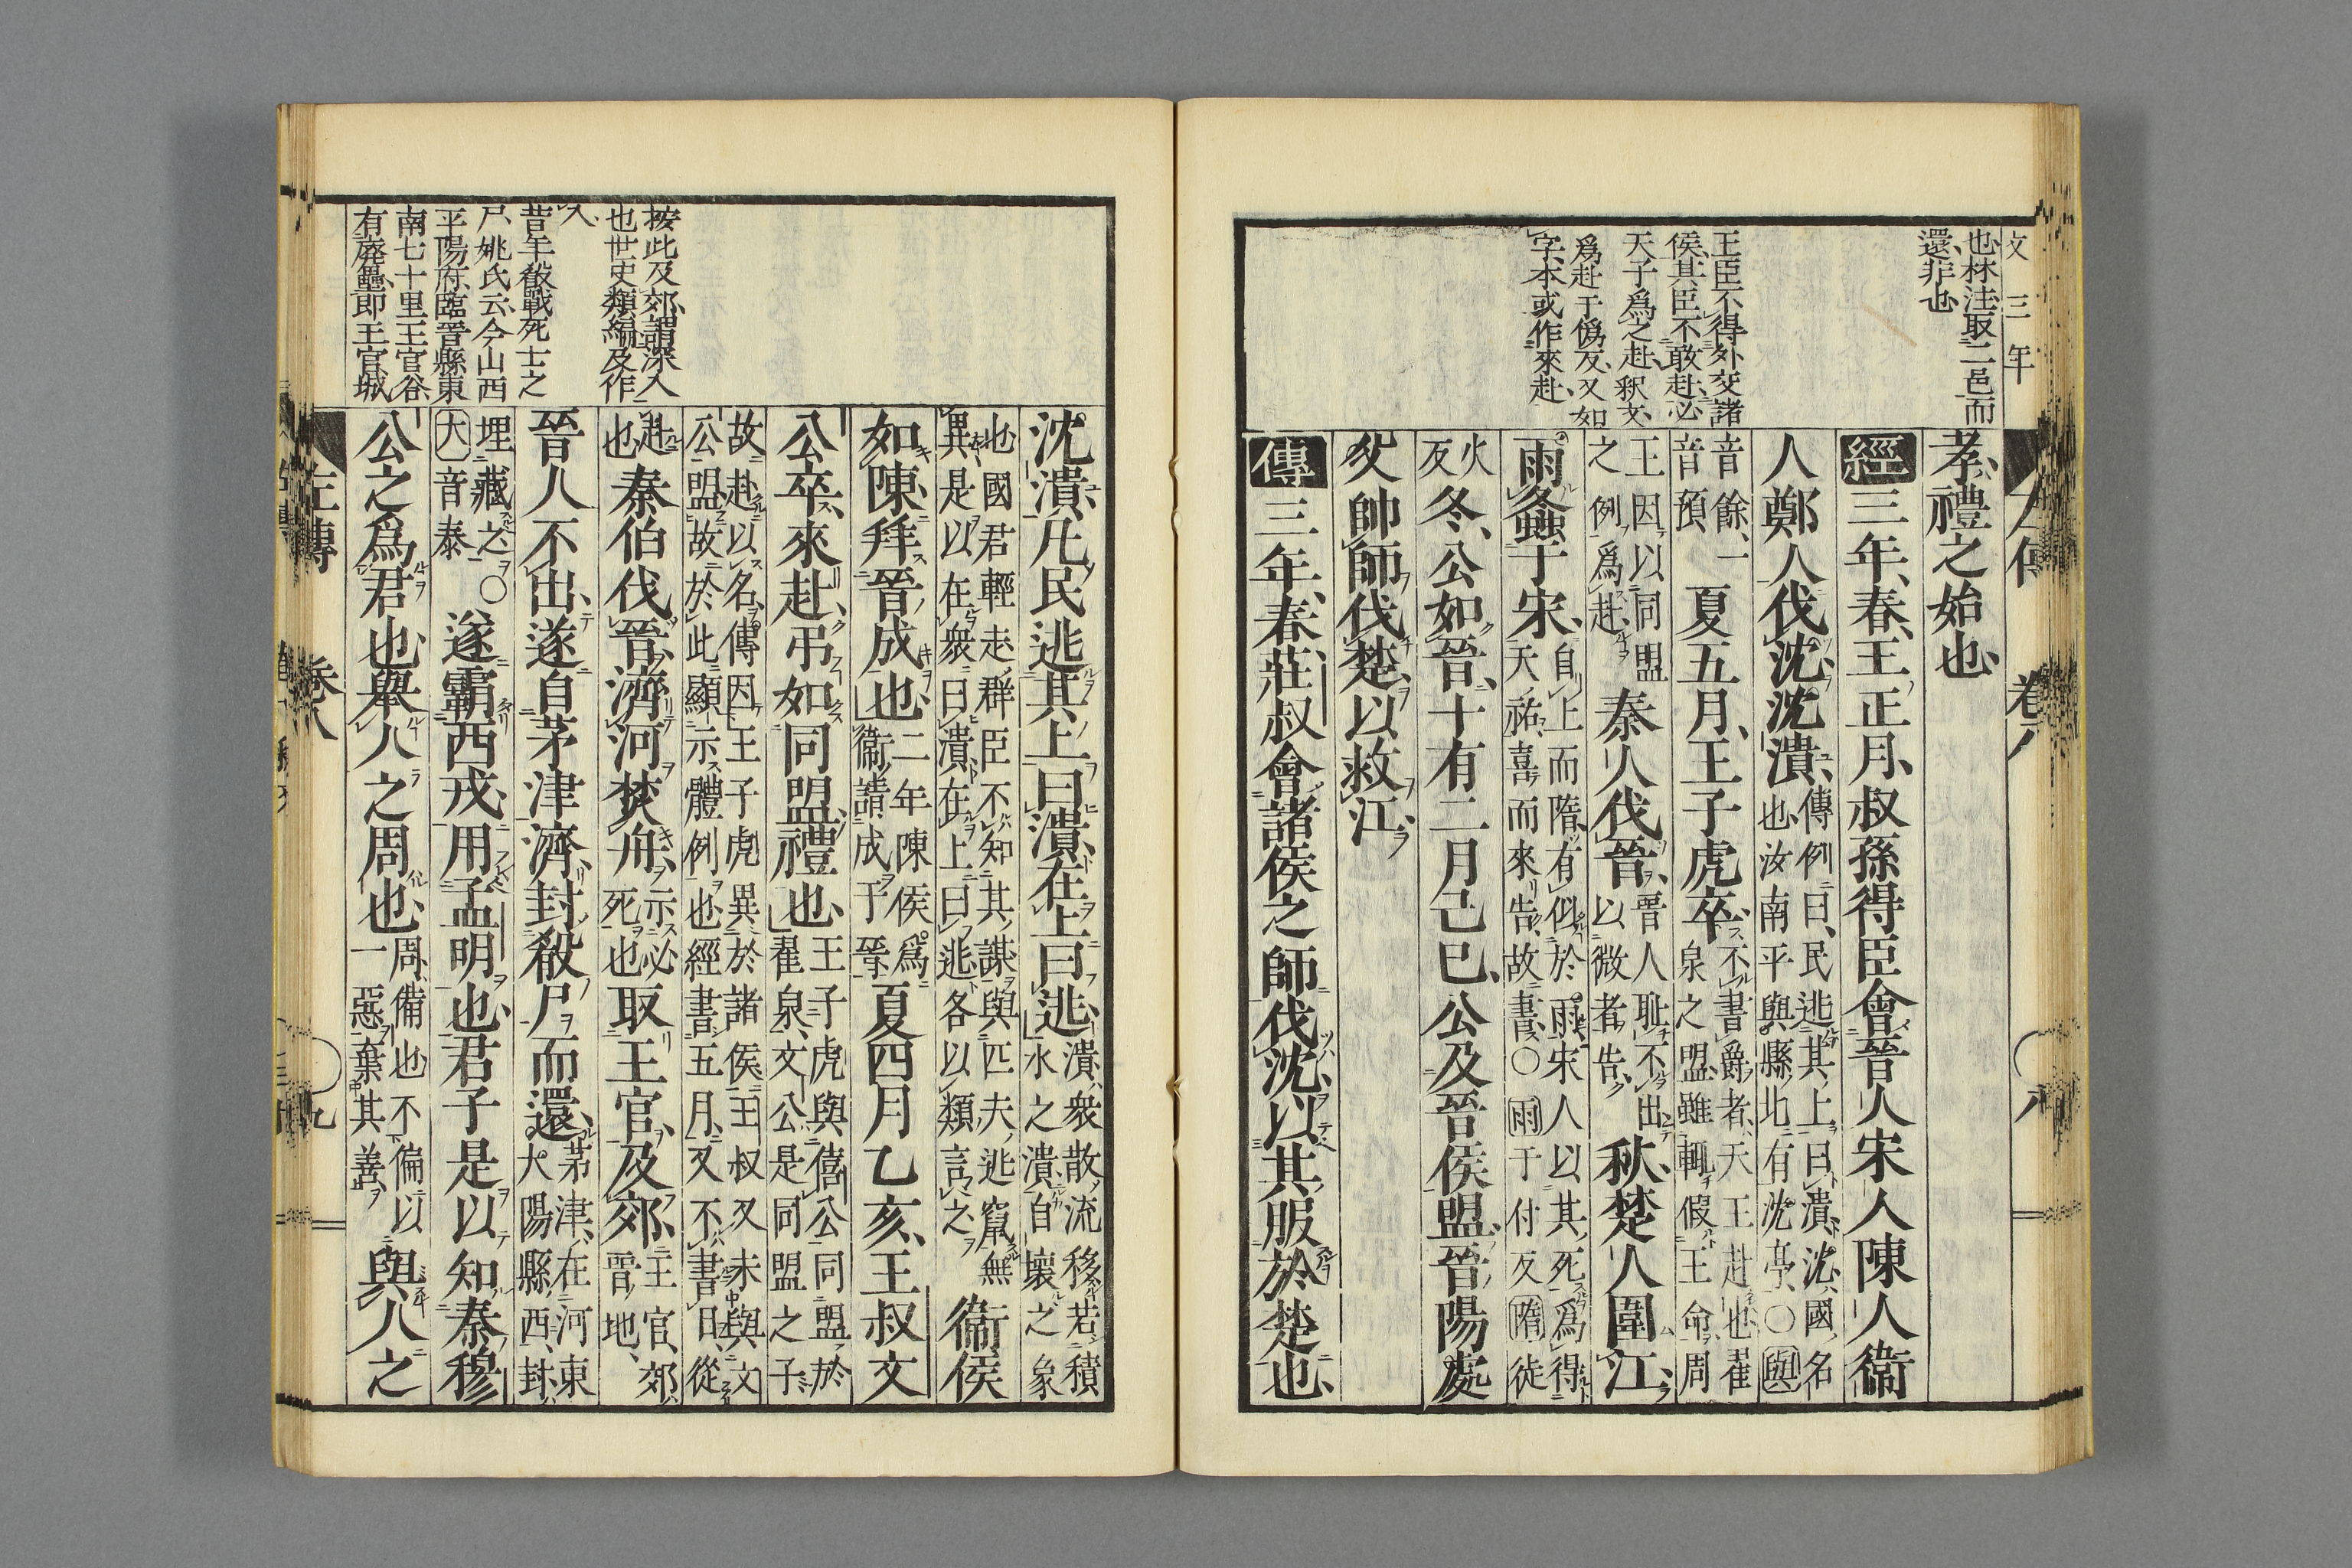 文三年
也林注取二邑而
還非也
王臣不得外交諸
侯其臣不敢赴必
天子爲之赴釈文
爲赴于僞反又如
字本或作來赴
孝禮之始也
經三年春王正月叔孫得臣會晉人宋人陳人衞
人鄭人伐沈沈潰傳例曰民逃其上曰潰沈國名
也汝南平輿縣北有沈亭○輿
音餘一
音預夏五月王子虎卒不書爵者天王赴也翟
泉之盟雖輒假王命周
王因以同盟
之例爲赴秦人伐晉晉人恥不出
以微者告秋楚人圍江
雨螽于宋自上而隋有似於雨宋人以其死爲得
天祐喜而來告故書○雨于付反隋徒
火
反冬公如晉十有二月己巳公及晉侯盟晉陽處
父帥師伐楚以救江
傳三年春莊叔會諸侯之師伐沈以其服於楚也
按此及郊謂深入
也世史類編及作
入
昔年殽戰死士之
尸姚氏云今山西
平陽府臨晉縣東
南七十里王官谷
有廃壘即王官城
沈潰凡民逃其上曰潰在上曰逃潰衆散流移若積
水之潰自壞之象
也國君輕走群臣不知其謀與匹夫逃竄無
異是以在衆曰潰在上曰逃各以類言之衞侯
如陳拜晉成也二年陳侯爲
衞請成于晉夏四月乙亥王叔文
公卒來赴弔如同盟禮也王子虎與僖公同盟於
翟泉文公是同盟之子
故赴以名傳因王子虎異於諸侯王叔又未與文
公盟故於此顯示體例也經書五月又不書日從
赴
也秦伯伐晉濟河焚舟示必
死也取王官及郊王官郊
晉地
晉人不出遂自茅津濟封殽尸而還茅津在河東
大陽縣西封
埋藏之○
大音泰遂霸西戎用孟明也君子是以知秦穆
公之爲君也舉人之周也周備也不偏以
一惡棄其善與人之
左傳
卷八
九